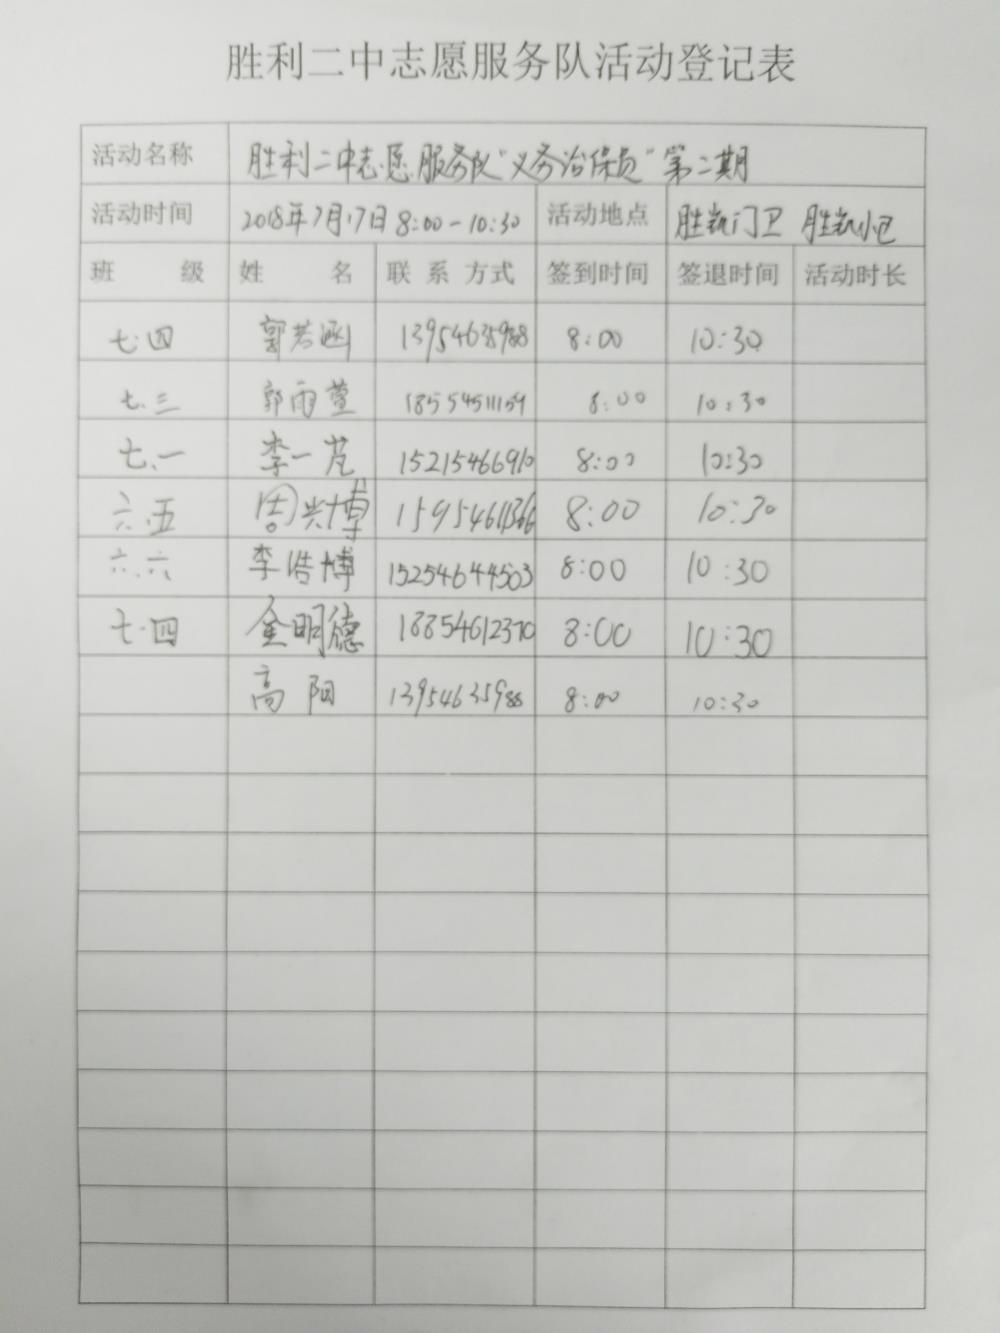 胜利二中志愿服务队活动登记表
活动名称 胜利二中志愿服务队"义务治保员"第二期
活动时间 2018年7月17日 8:00-10:30 活动地点 胜凯门卫 胜凯小区
班 级 姓 名 联系方式 签到时间 签退时间 活动时长
七.四 郭若涵 13954635988 8:00 10:30
七.三 郭雨萱 18554511159 8:00 10:30
七.一 李一芃 15215466910 8:00 10:30
六.五 周兴博 8:00 10:30
六.六 李浩博 15254644503 8:00 10:30
七.四 金明德 18854612370 8:00 10:30
高阳 13954635988 8:00 10:30